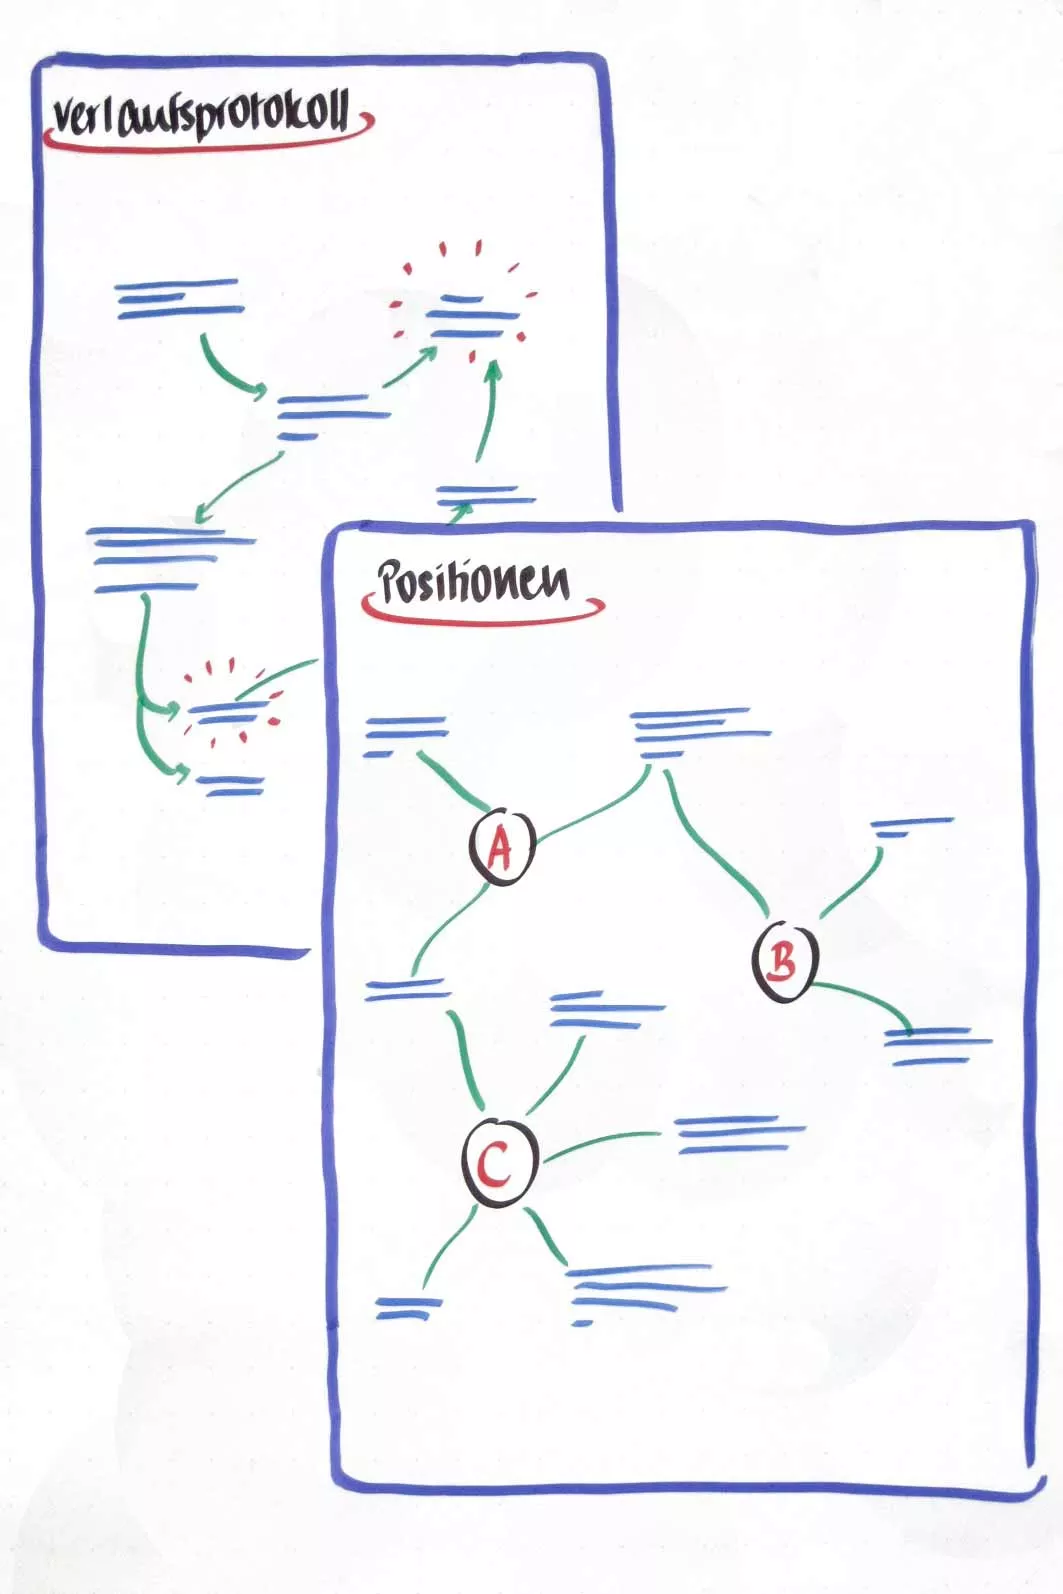 Verlaufsprotokoll
Positionen
A
B
C